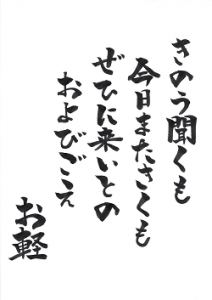 きのう聞くも
今日またきくも
ぜひに来いとの
およびごゑ
お軽